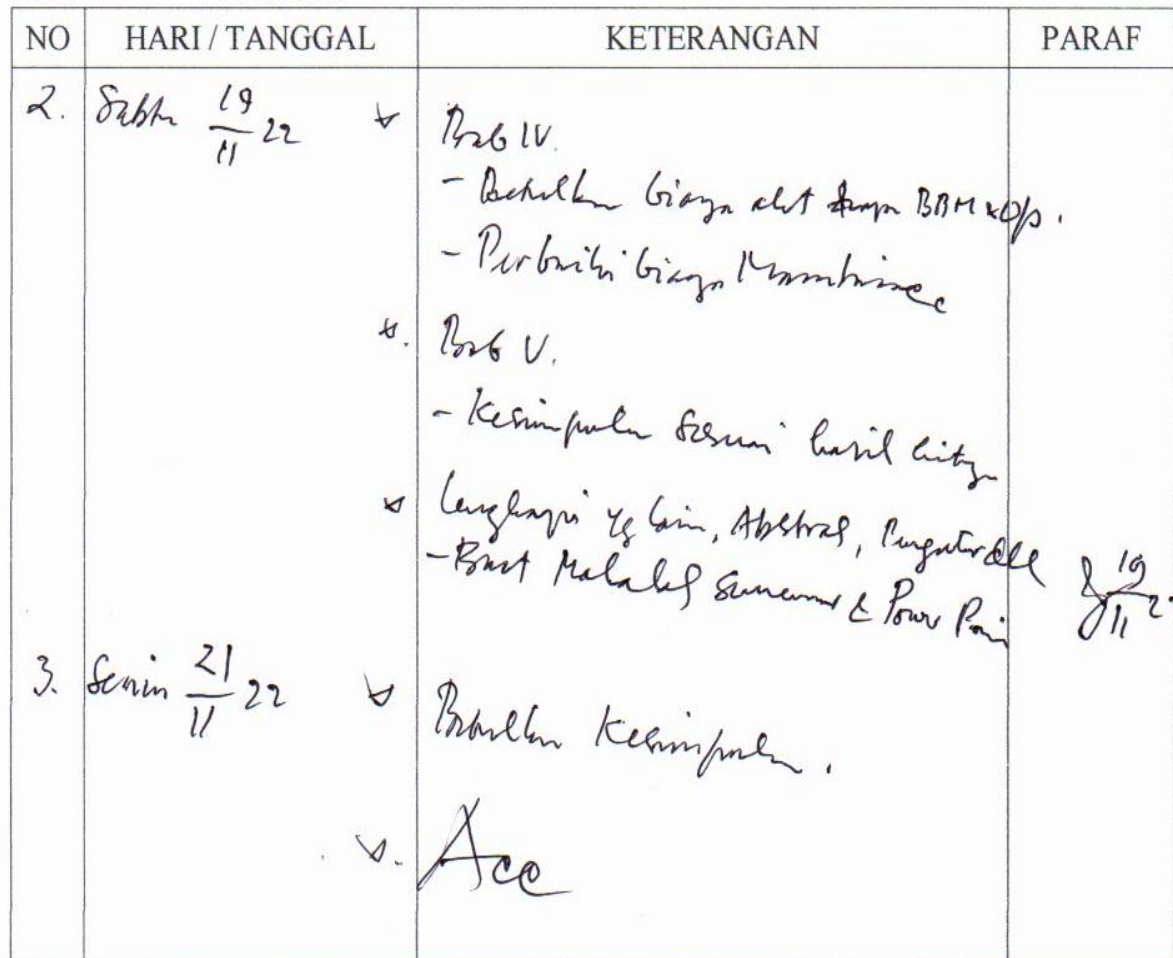 NO HARI / TANGGAL KETERANGAN PARAF
2. Sabtu 19/11 22 Bab IV.
- Betulkan biaya alat BBM x Op.
- Perbaiki biaya
Bab V.
- Kesimpulan sesuai hasil
Lengkapi yg lain, Abstrak, Pengantar dll
- Buat Makalah & Power Poin 19/11 2
3. Senin 21/11 22 Betulkan Kesimpulan.
Acc